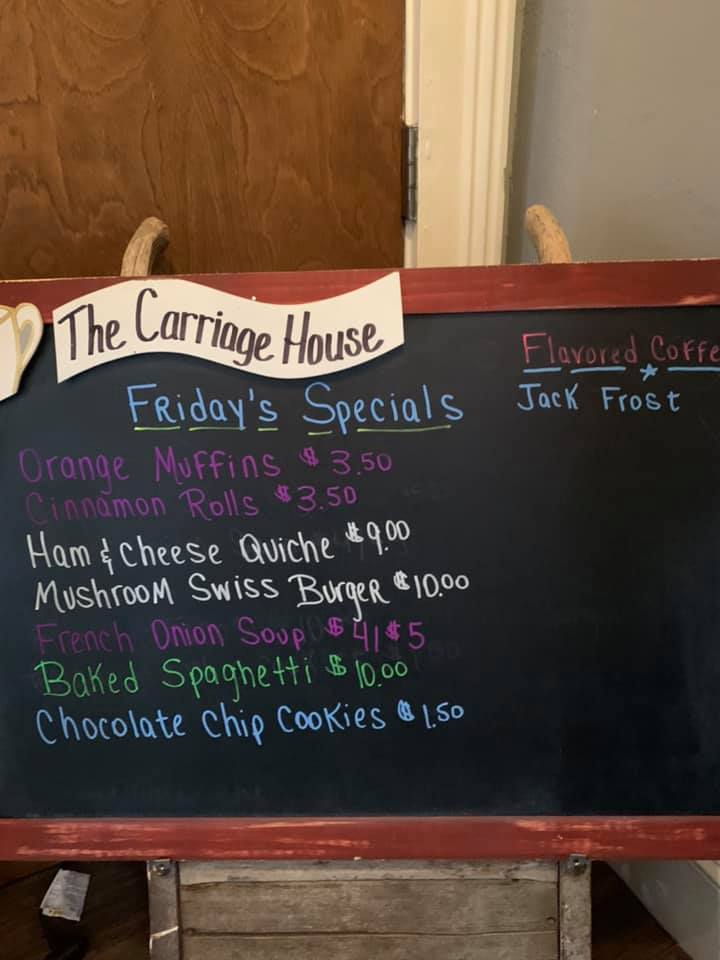 The Carriage House
Friday's Specials
Orange Muffins $3.50
Cinnamon Rolls $3.50
Ham & Cheese Quiche $9.00
Mushroom Swiss Burger $10.00
French Onion Soup $4/$5
Baked Spaghetti $10.00
Chocolate Chip Cookies $1.50
Flavored Coffe
Jack Frost